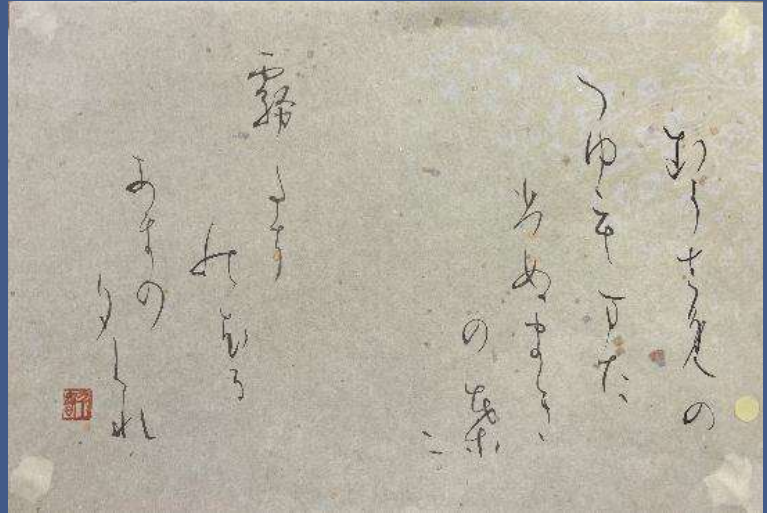 むらさめの
つゆもまだ
ひぬまき
の葉
に
霧たち
のぼる
あきの
夕くれ